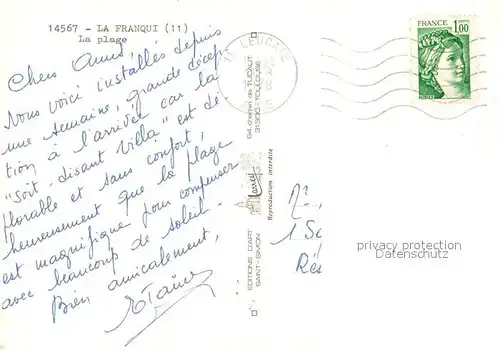 14567 - LA FRANQUI (11)
La plage
Chers Amis,
Nous voici installés depuis
une semaine, grande décep
tion à l'arrivée car la
"Soit-disant Villa" est dé-
plorable et sans confort,
heureusement que la plage
est magnifique pour compenser
avec beaucoup de soleil.
Bien amicalement,
EDITIONS D'ART
SAINT-SIMON
64, chemin de TUCAUT
31300 - TOULOUSE
Reproduction interdite
11 LEUCATE
FRANCE
1,00
POSTES
1
Rés
privacy protection
Datenschutz